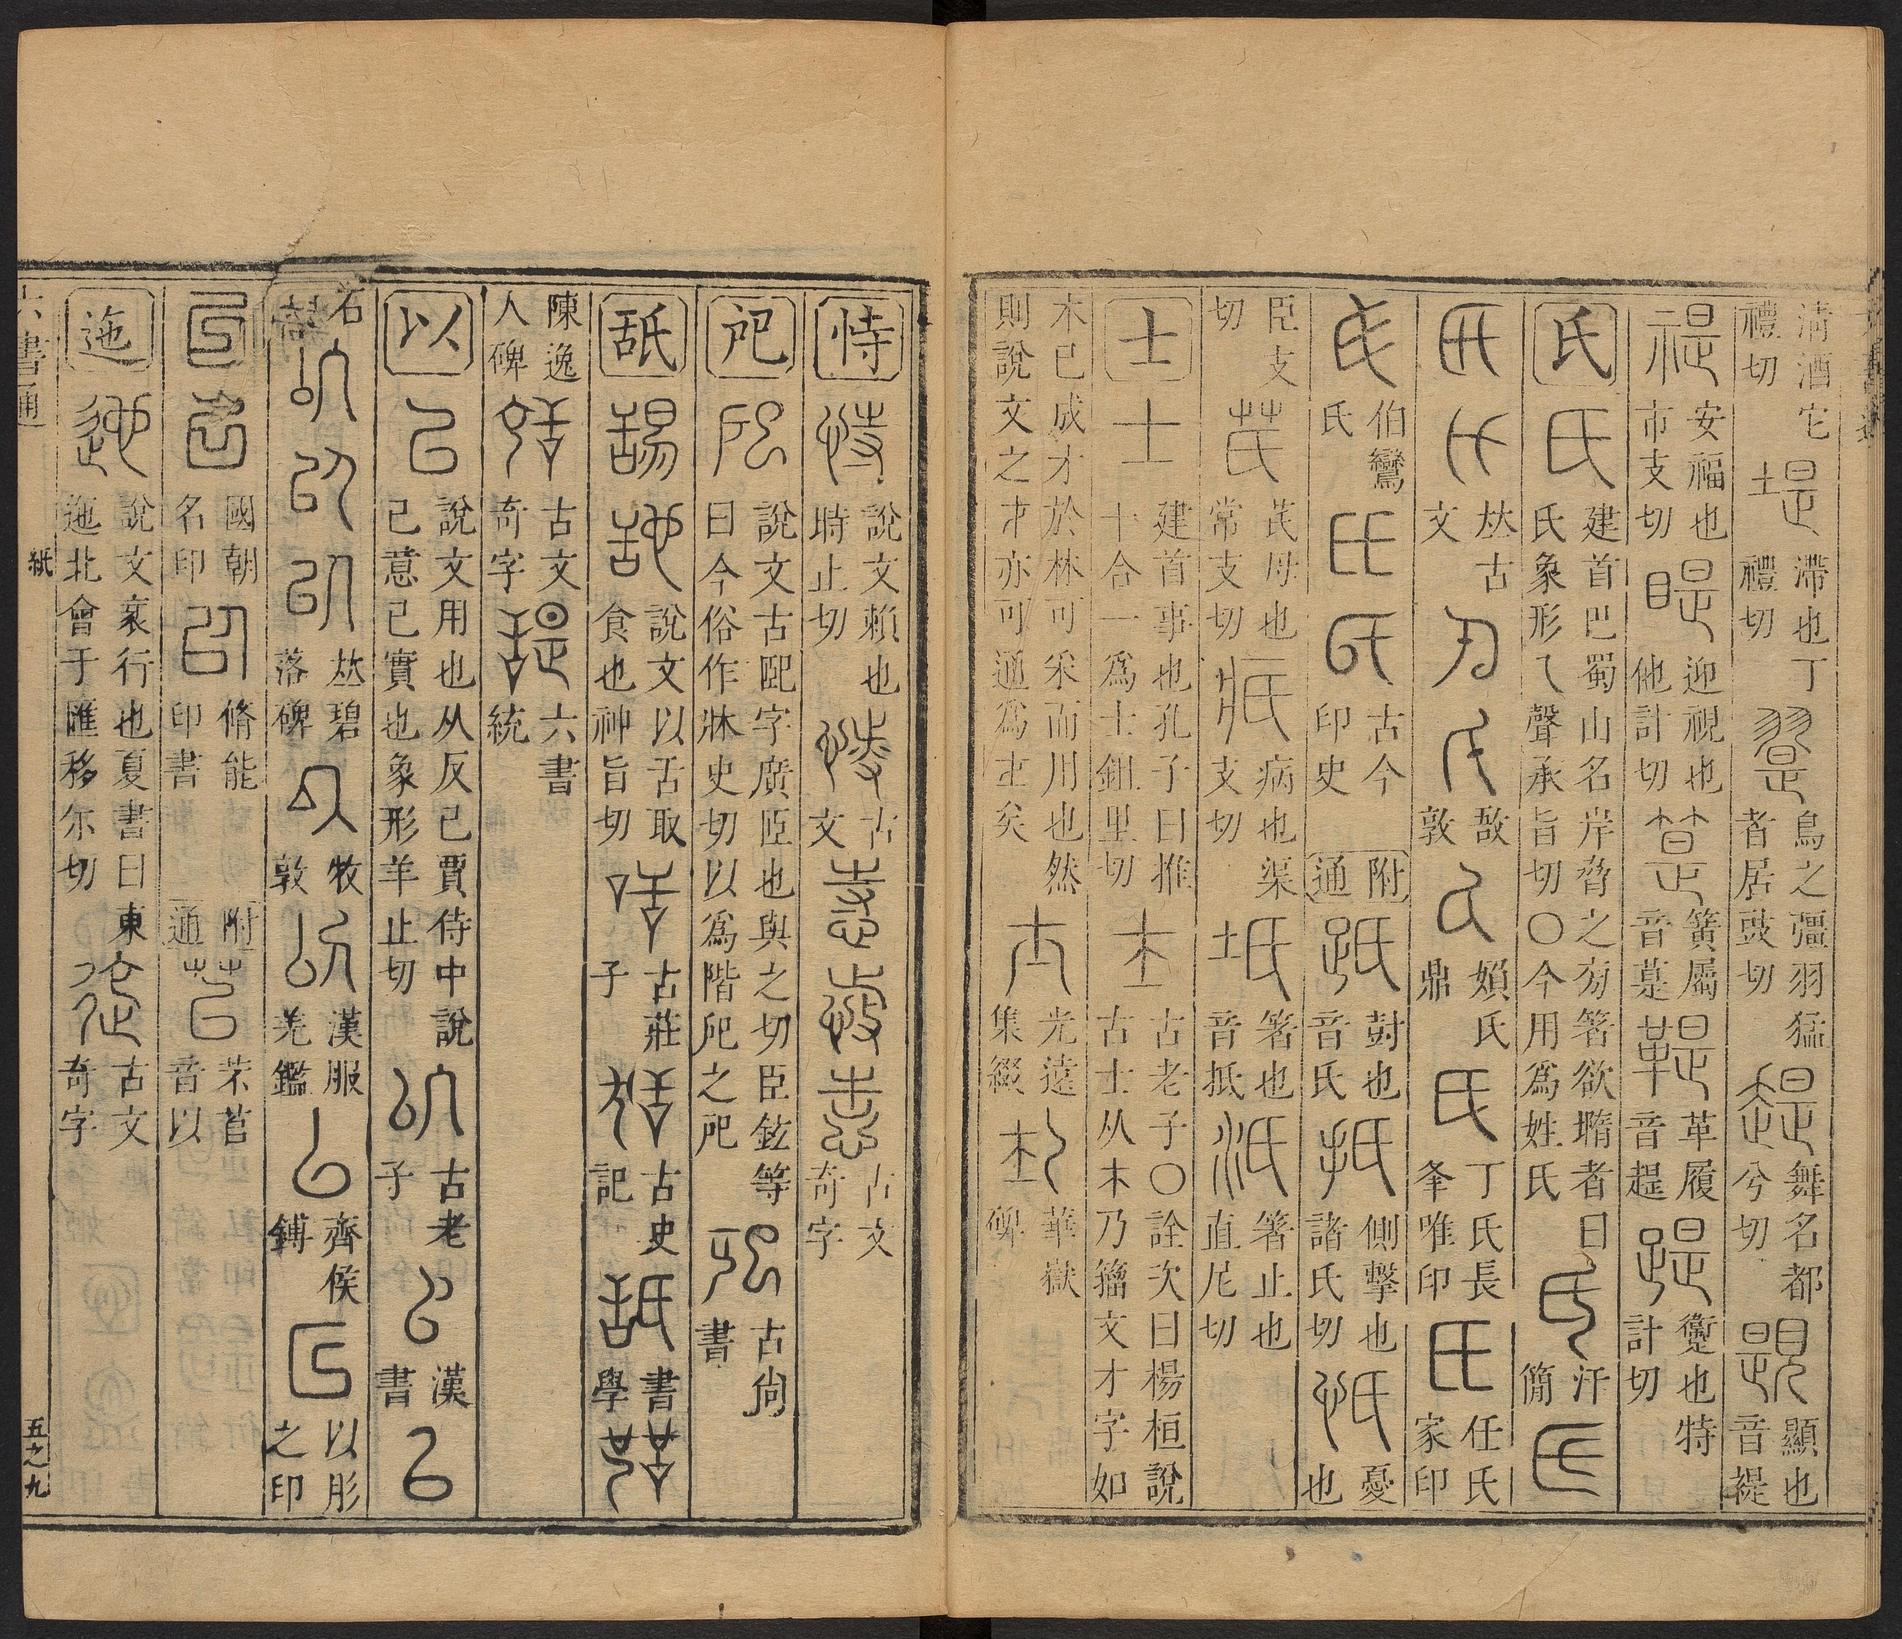 清酒它禮切 堤 滯也丁禮切 翨 鳥之彊羽猛者居豉切 趧 舞名都兮切 題 顯也音禔
禔 安福也市支切 睼 迎視也他計切 簧屬音 鞮 革履音趧 踶 躗也特計切
氏 氏 建首巴蜀山名岸脅之旁箸欲墮者曰氏象形乁聲承旨切〇今用爲姓氏 汗簡
𠀤古文 敔敦 鼎 丁氏長夆唯印 任氏家印
伯鸞氏 古今印史 附通 也音氏 抵 側擊也諸氏切 忯 憂也
臣支切 芪 芪母也常支切 疧 病也渠支切 坻 箸也音抵 泜 箸止也直尼切
士 士 建首事也孔子曰推十合一爲士鉏里切 古老子〇詮次曰楊桓說古士从木乃籀文才字如
木已成才於林可采而川也然則說文之才亦可通爲士矣 光遠集綴 華嶽碑
恃 恃 說文賴也時止切 古文 古文奇字
戺 說文古巸字廣臣也與之切臣鉉等曰今俗作牀史切以爲階戺之戺 古尙書
舐 說文以舌取食也神旨切 古莊子 古史記 書學
陳逸人碑 古文奇字 六書統
以 說文用也从反已賈侍中說已意已實也象形羊止切 古老子 漢書
石鼓 𠀤碧落碑 牧敦 漢服羌鑑 齊侯鎛 以彤之印
國朝名印 脩能印書 附通 苡 芣苢音以
迆 迆 說文衺行也夏書曰東迆北會于匯移尒切 古文奇字
六書通 紙 五之九